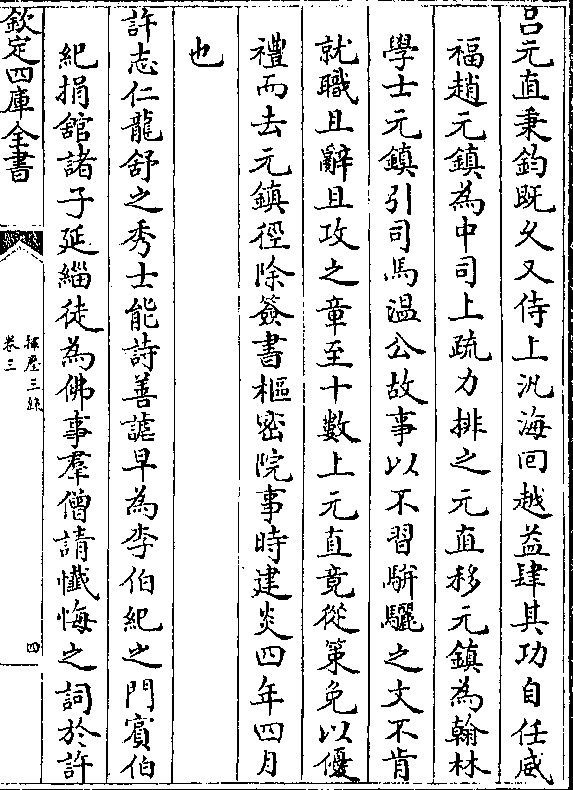 吕元直秉鈞既久又侍上汎海囘越益肆其功自任威
福趙元鎮為中司上疏力排之元直移元鎮為翰林
學士元鎮引司馬温公故事以不習駢驪之文不肯
就職且辭且攻之章至十數上元直竟從策免以優
禮而去元鎮徑除簽書樞密院事時建炎四年四月
也
許志仁龍舒之秀士能詩善謔早為李伯紀之門賓伯
紀捐舘諸子延緇徒為佛事羣僧請懴悔之詞於許
欽定四庫全書
揮麈三錄
卷三
四